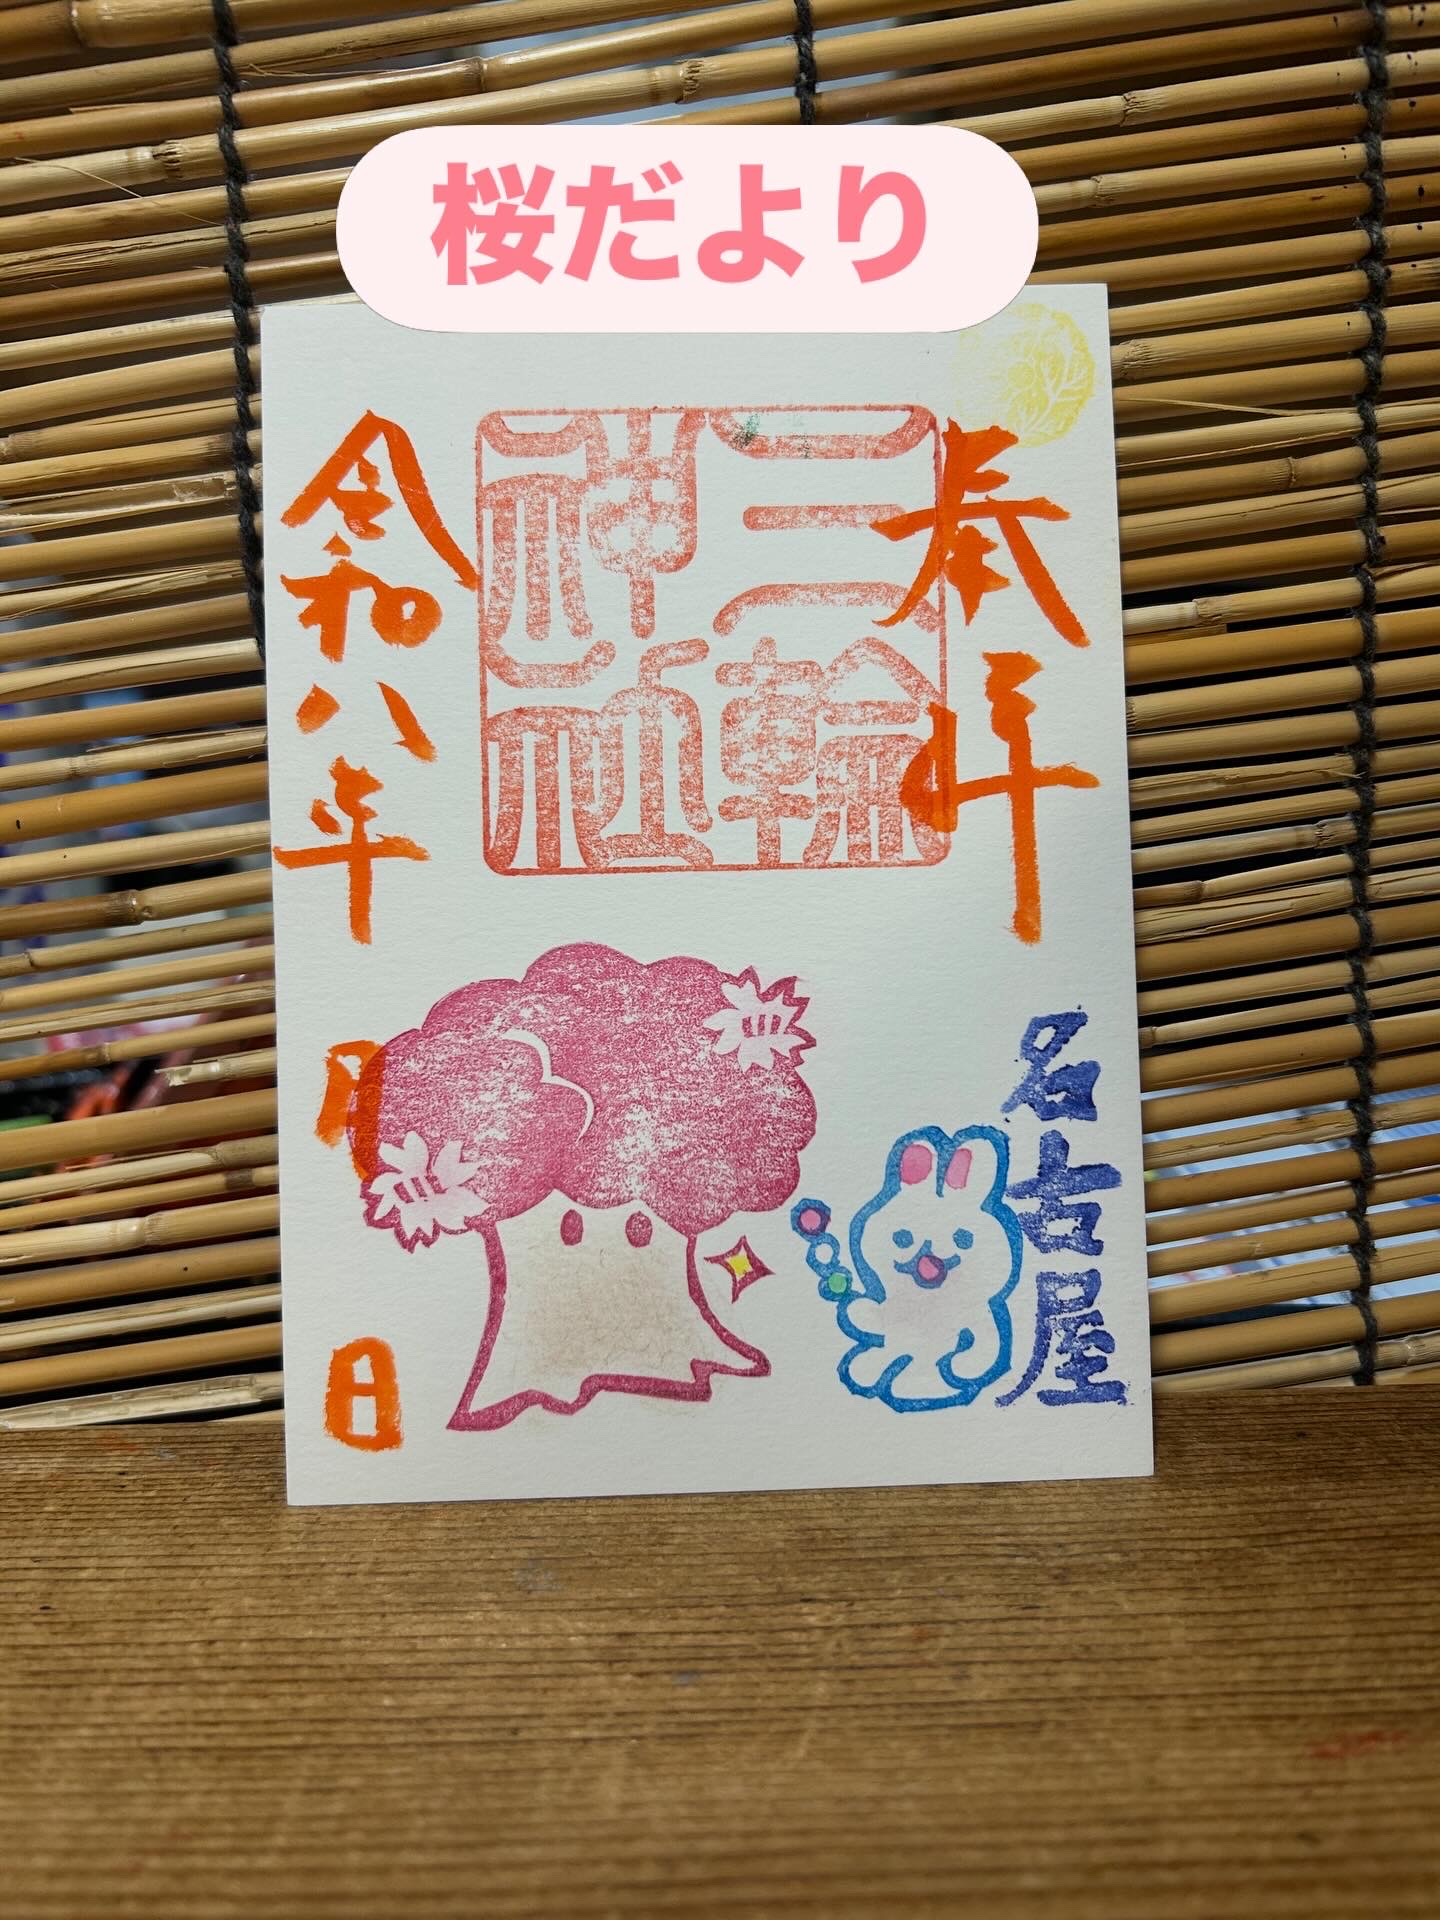 桜だより
奉拝
三輪
神社
令和八年
月
日
名古屋